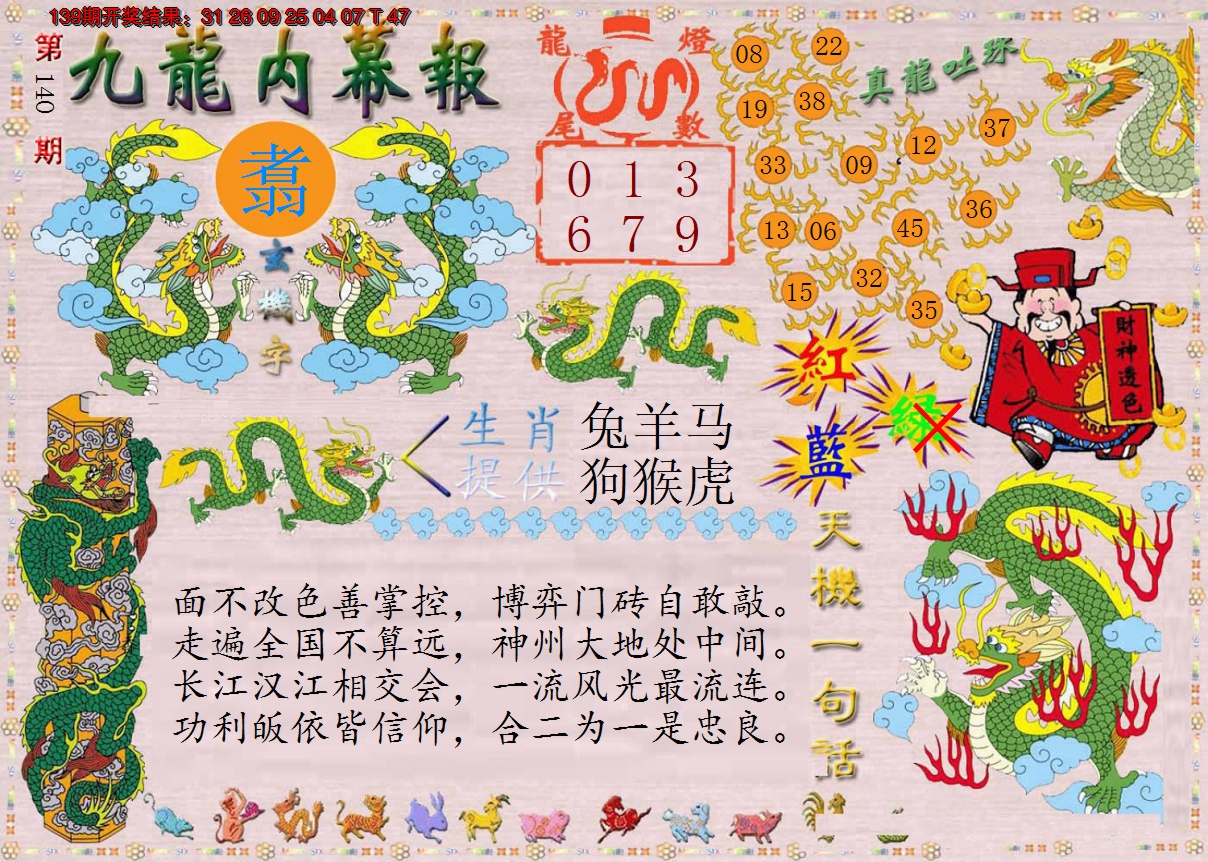 139期开奖结果：31 26 09 25 04 07 T 47
第140期
九龍内幕報
翥
玄機字
龍燈
尾數
0 1 3
6 7 9
真龍吐珠
08 22
19 38
33 09 12 37
13 06 45 36
15 32 35
財神透色
紅
綠
藍
生肖 兔羊马
提供 狗猴虎
天機一句话
面不改色善掌控，博弈门砖自敢敲。
走遍全国不算远，神州大地处中间。
长江汉江相交会，一流风光最流连。
功利皈依皆信仰，合二为一是忠良。